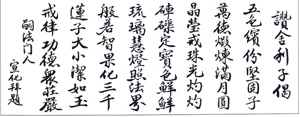 讚舍利子偈
五色繽份堅固子
萬德煅煉滿月圓
晶瑩戒珠光灼灼
硨磲定寶色鮮鮮
琉璃慧燈照法界
般若智果化三千
蓮子大小潔如玉
戒律功德眾莊嚴
嗣法門人
宣化拜題